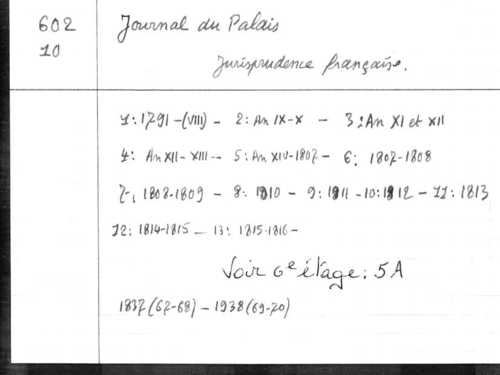 602
10
Journal du Palais
Jurisprudence française.
1: 1791-(VIII) - 2: An IX-X - 3: An XI et XII
4: An XII-XIII - 5: An XIV-1807 - 6: 1807-1808
7: 1808-1809 - 8: 1810 - 9: 1811 - 10: 1812 - 11: 1813
12: 1814-1815 - 13: 1815-1816 -
Voir 6e étage: 5A
1837 (67-68) - 1938 (69-70)